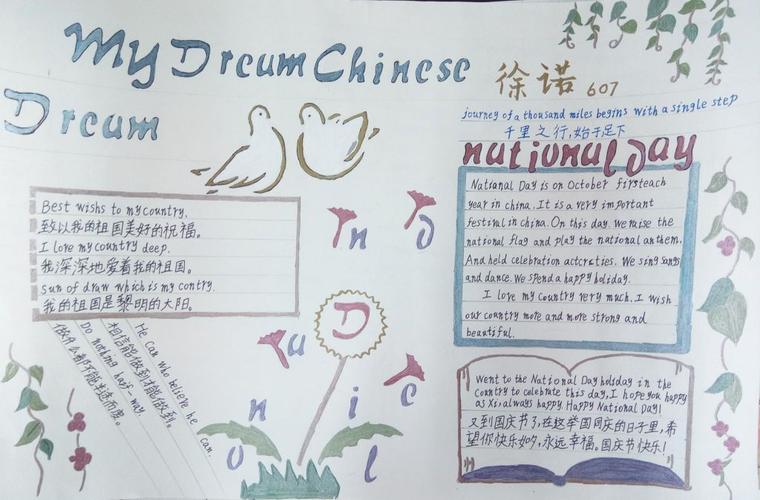 My Dream Chinese
Dream
徐诺 607
journey of a thousand miles begins with a single step
千里之行,始于足下
national Day
National Day is on October firsteach
year in china. It is a very important
festival in china. On this day. We raise the
national flag and play the national anthem.
And held celebration actcreties. We sing songs
and dance. We spend a happy holiday.
I love my country very much. I wish
our country more and more strong and
beautiful.
Best wishs to my country.
致以我的祖国美好的祝福。
I love my country deep.
我深深地爱着我的祖国。
sun of draw which is my contry.
我的祖国是黎明的太阳。
He can who believe he can
相信能做到才能做到。
Do nothing half-way
做什么都不能半途而废。
n a
D
a
o n i c l
Went to the National Day holiday in the
Country to celebrate this day, I hope you happy
as Xi, always happy. Happy National Day!
又到国庆节了,在这举国同庆的日子里,希
望你快乐如夕,永远幸福。国庆节快乐!